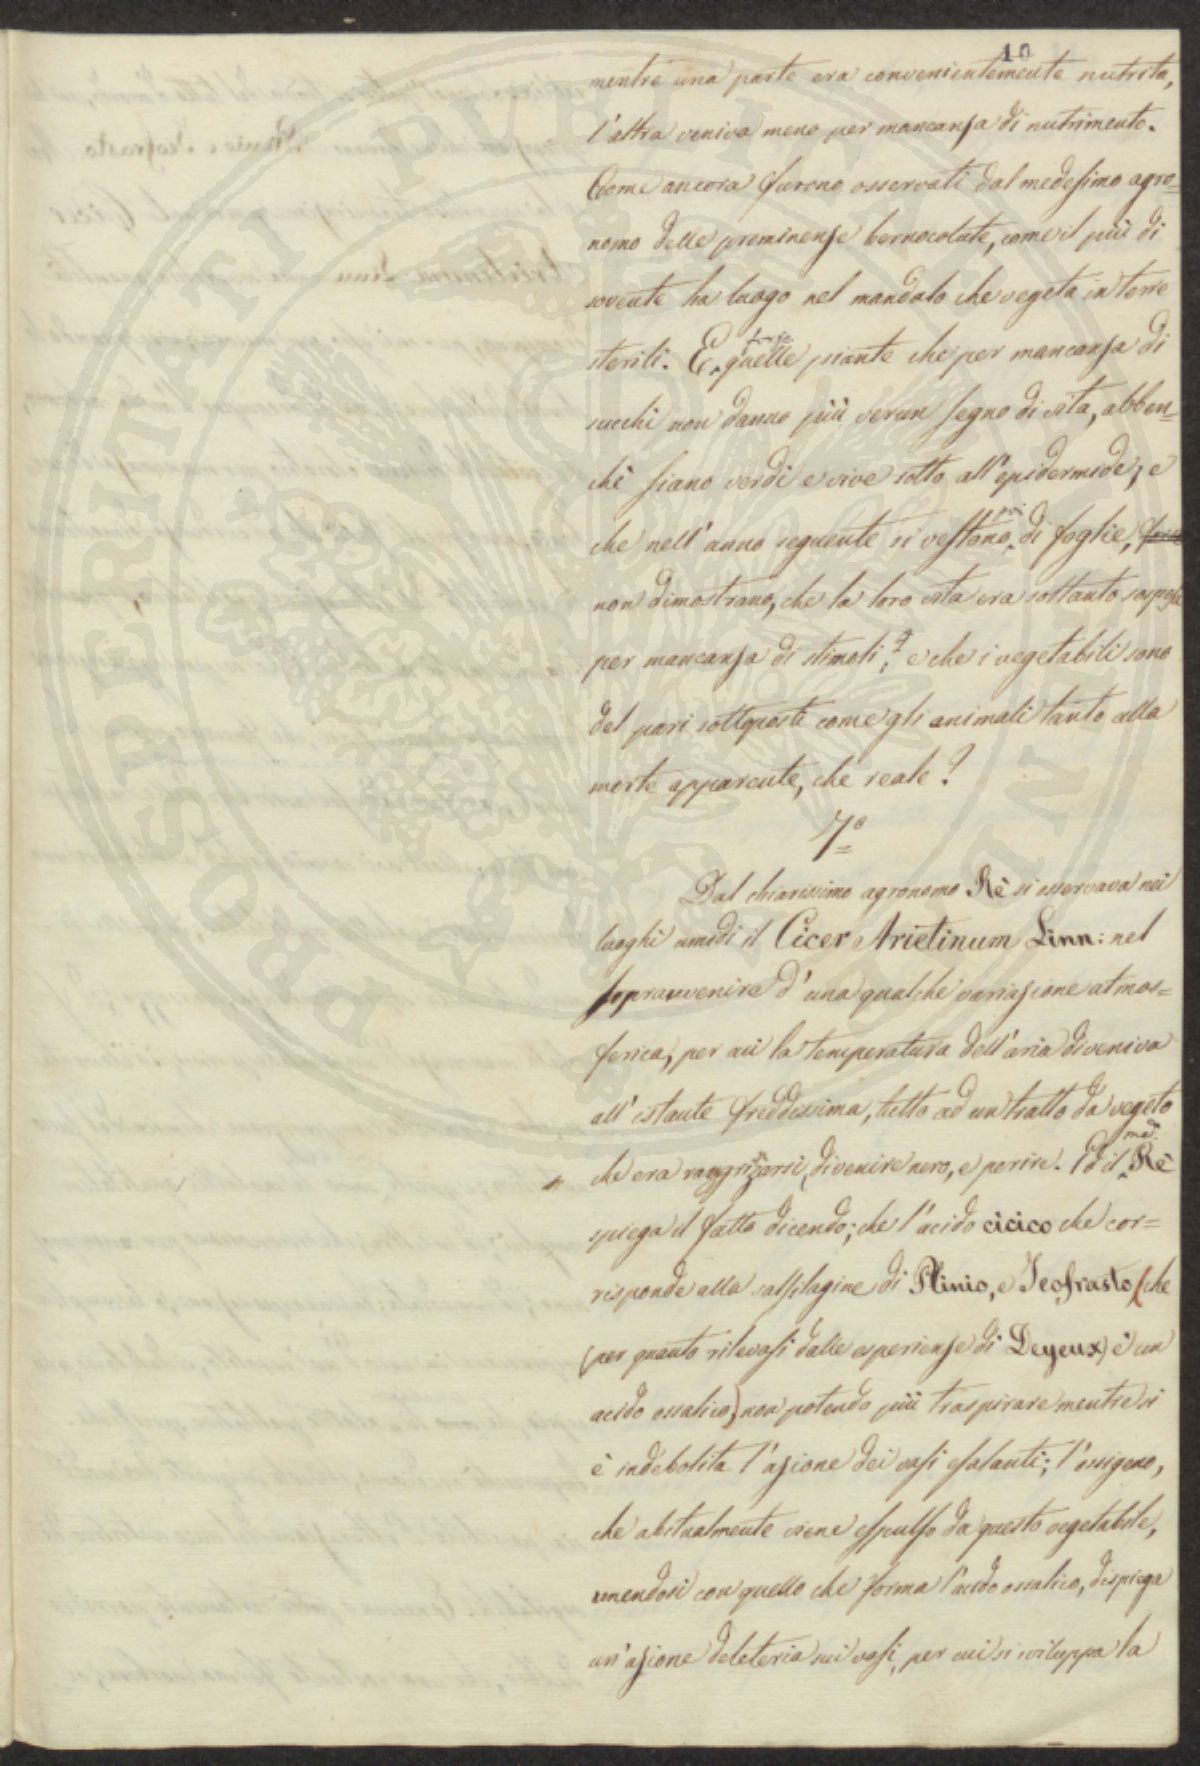 10
mentre una parte era convenientemente nutrita,
l'altra veniva meno per mancanza di nutrimento.
Come ancora furono osservati dal medesimo agro=
nomo delle prominenze bernocolute, come il più di
sovente ha luogo nel mandolo che vegeta in terre
sterili. E forse quelle piante che per mancanza di
succhi non danno più verun segno di vita, abben=
chè siano verdi e vive sotto all'epidermide, e
che nell'anno seguente si vestono poi di foglie, forse
non dimostrano, che la loro vita era soltanto sospesa
per mancanza di stimoli; e che i vegetabili sono
del pari sottoposti come gli animali tanto alla
morte apparente, che reale?
7º
Dal chiarissimo agronomo Rè si osservava nei
luoghi umidi il Cicer Arietinum Linn: nel
sopravvenire d'una qualche variazione atmos=
ferica, per cui la temperatura dell'aria diveniva
all'istante freddissima, tutto ad un tratto da vegeto
che era raggrizzarsi, divenire nero, e perire. Ed il med. Rè
spiega il fatto dicendo; che l'acido cicico che cor=
risponde alla salsilagine di Plinio, e Teofrasto (che
(per quanto rilevasi dalle esperienze di Deyeux) è un
acido ossalico) non potendo più traspirare mentre si
è indebolita l'azione dei vasi esalanti; l'ossigeno,
che abitualmente viene espulso da questo vegetabile,
unendosi con quello che forma l'acido ossalico, dispiega
un'azione deleteria sui vasi, per cui si sviluppa la
PROSPERITATI PVBLICAE